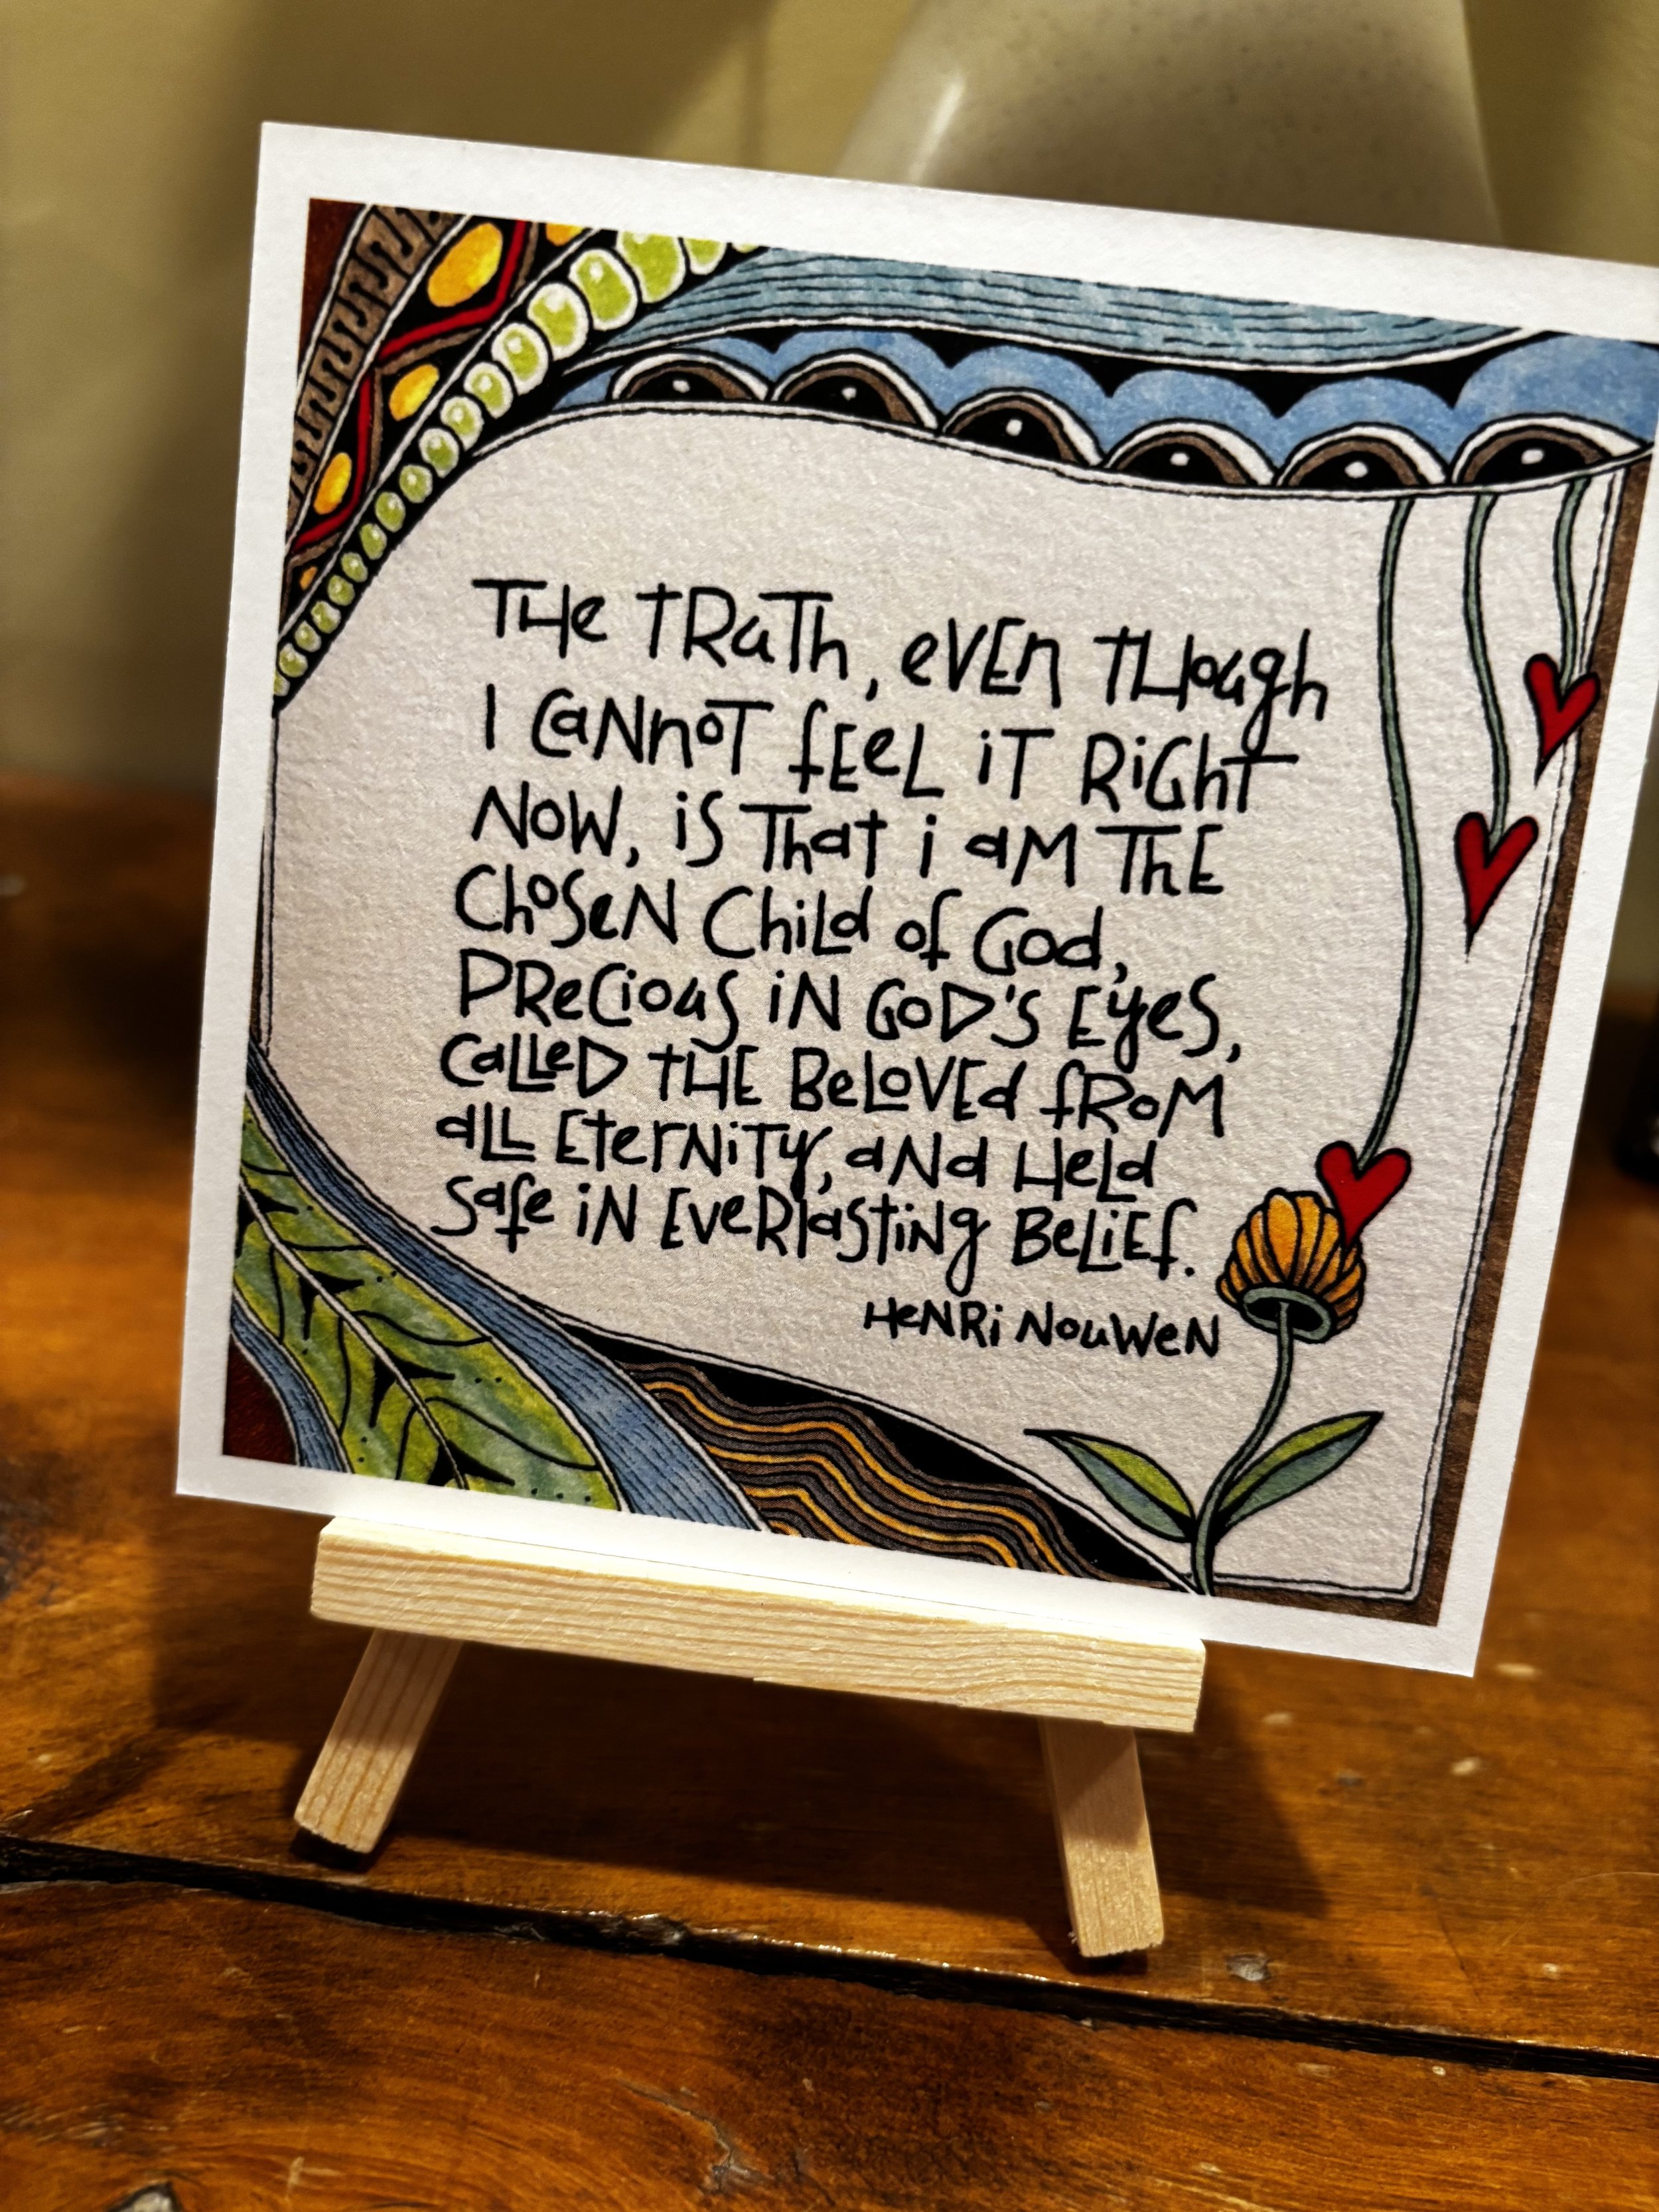 The truth, even though
I cannot feel it right
now, is that i am the
chosen child of God,
precious in God's eyes,
called the Beloved from
all eternity, and held
safe in everlasting belief.
Henri Nouwen